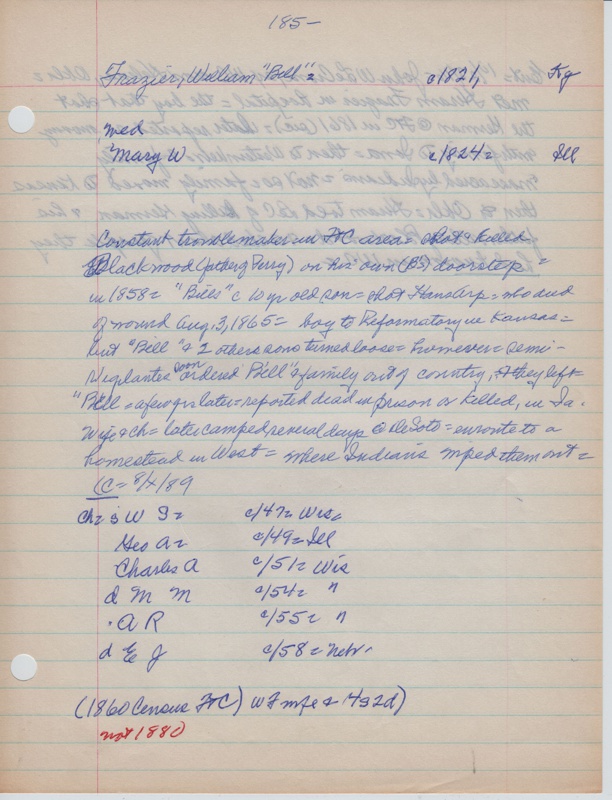 185-
Frazier, William "Bill" = c1821, Ky
med
Mary W c/1824 = Ill
Constant troublemaker in FtC area = shot & killed
Blackwood (father of Perry) on his own (B's) doorstep =
in 1858 = "Bill's" c 10 yr old son = shot Hans Carp = who died
of wound Aug. 3, 1865 = boy to Reformatory in Kansas =
but "Bill" & 2 other sons turned loose = however = semi-
Vigilantes soon ordered "Bill" & family out of country, & they left =
"Bill = a few yrs later = reported died in prison or killed, in Ia.
Wife & ch = later camped several days @ DeSoto = enroute to a
homestead in West = where Indians wiped them out =
LC = 8/4/89
Ch = s W S = c/47 = Wis =
Geo A = c/49 = Ill
Charles A c/51 = Wis
d M M c/54 = "
A R c/55 = "
d E J c/58 = Nebr.
(1860 Census FtC) W F wife & 4s 2d)
not 1880